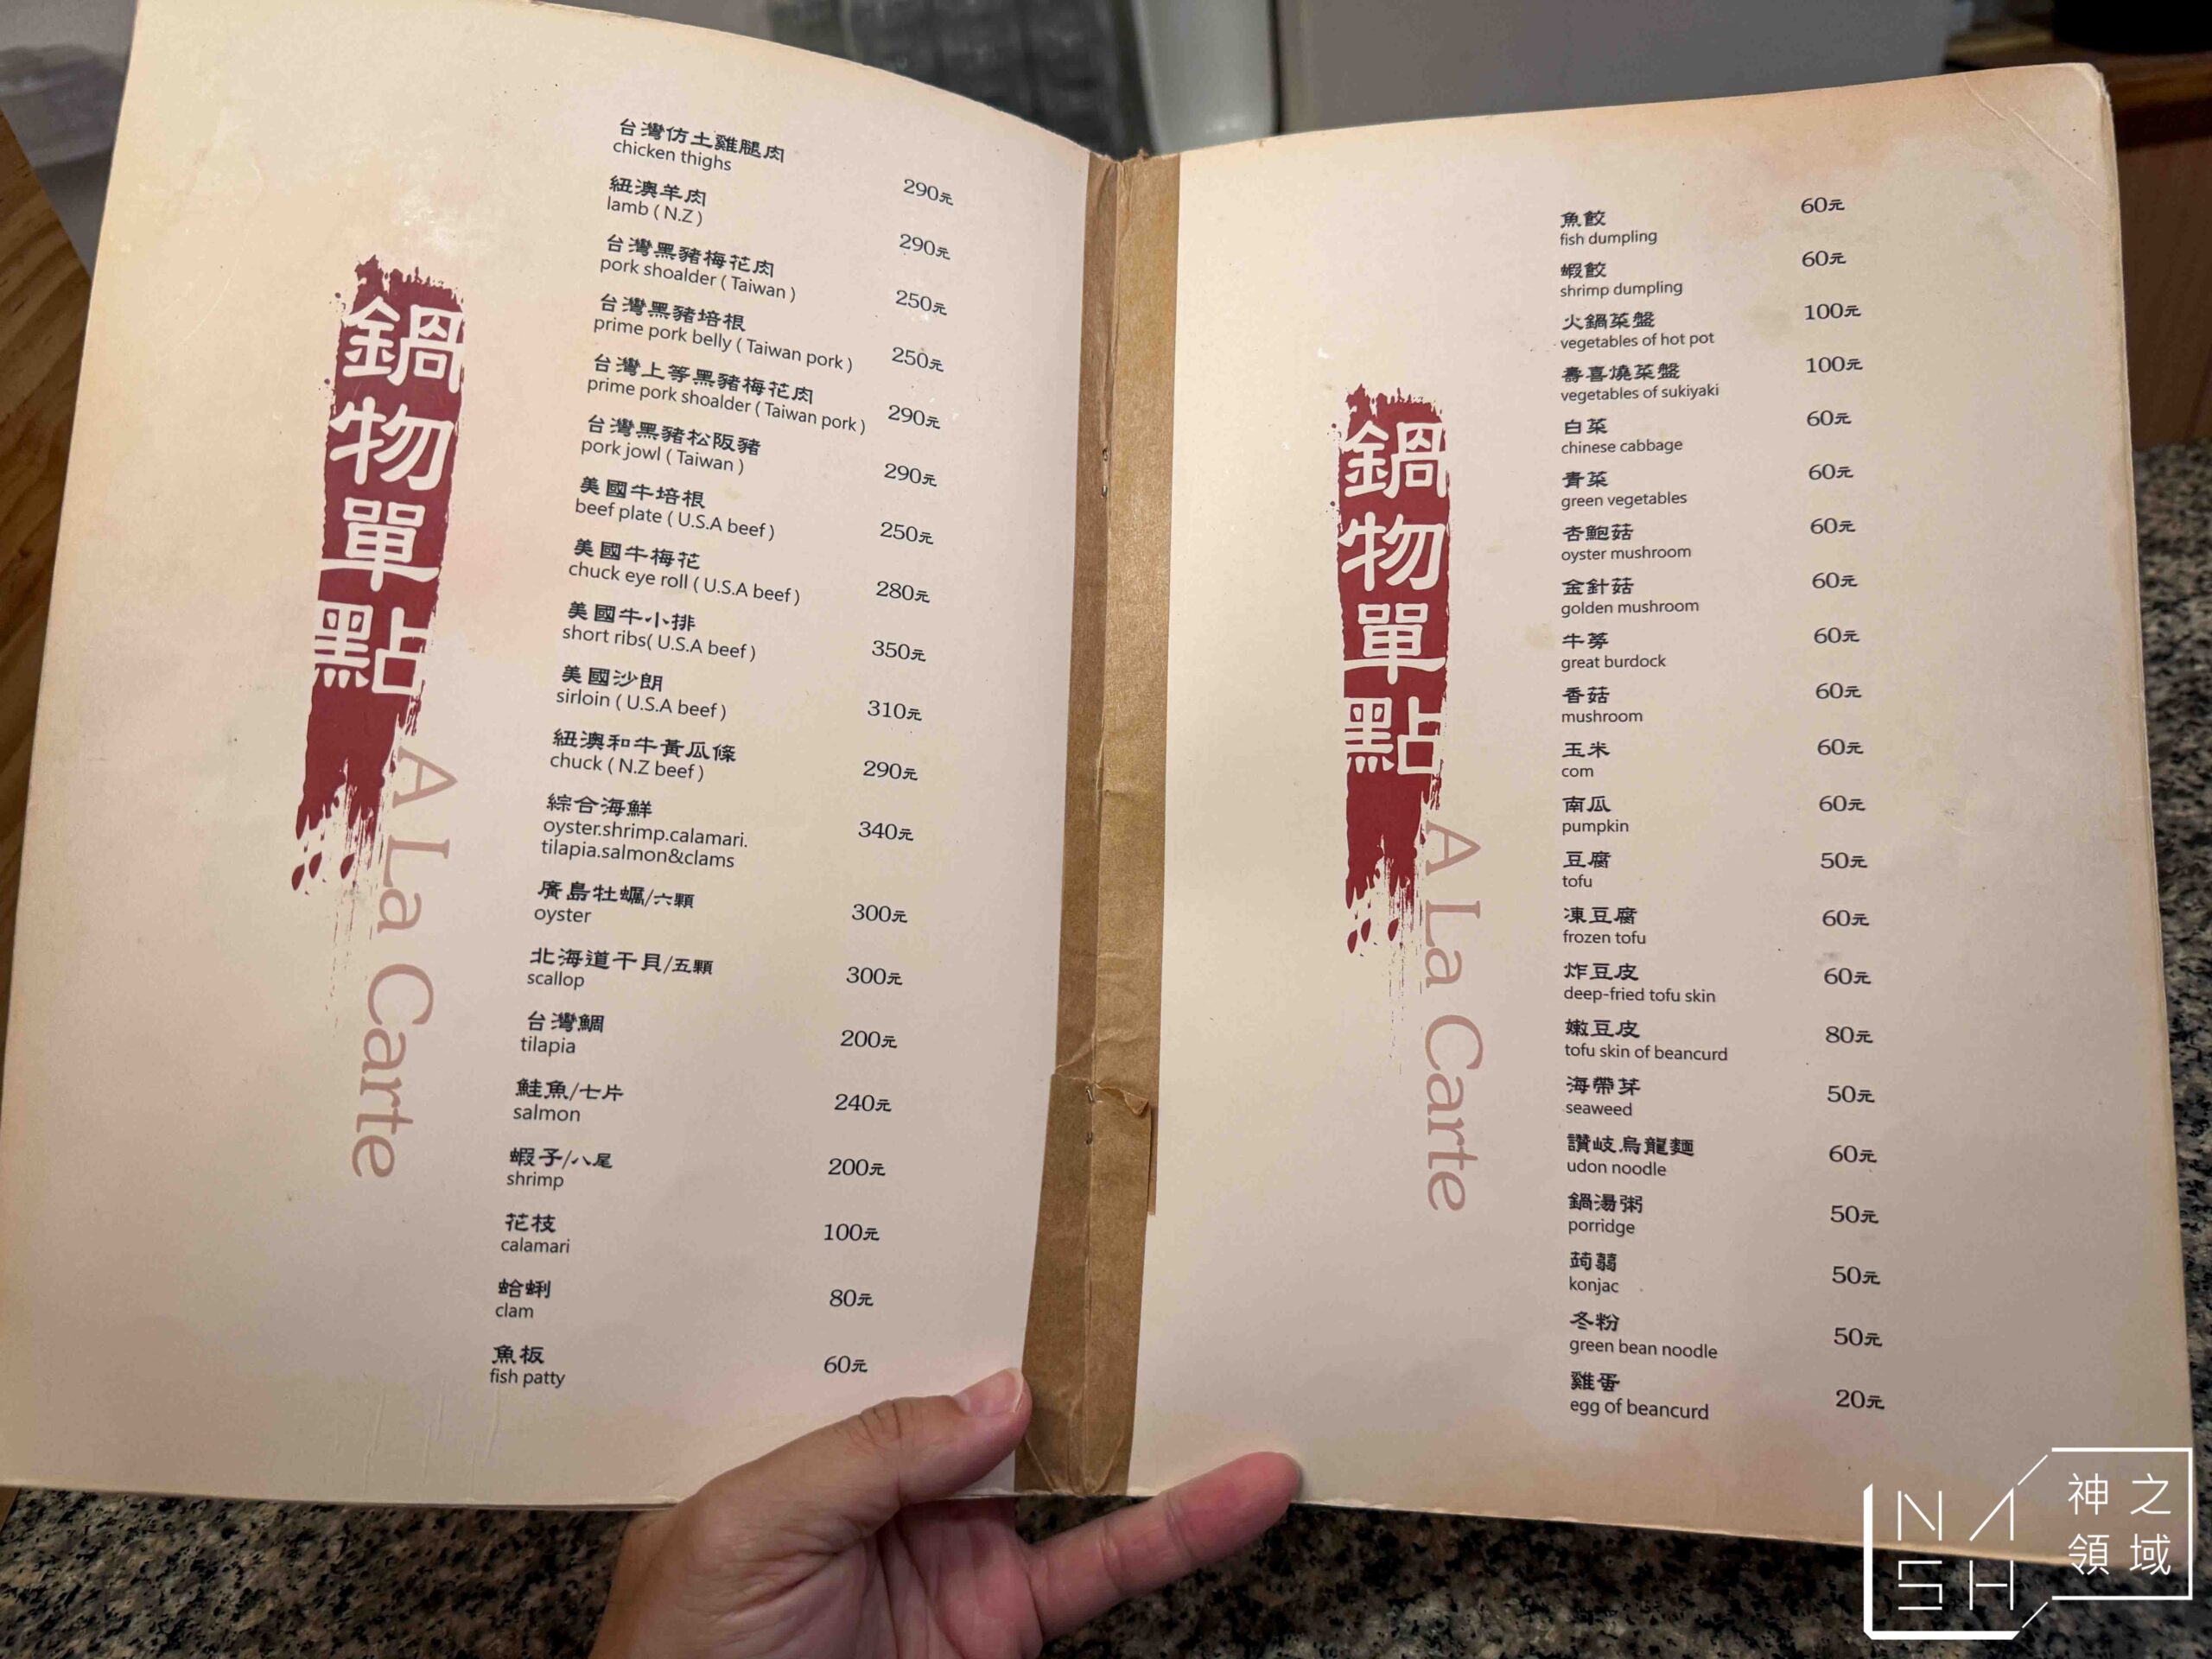 鍋物單點
A La Carte
台灣仿土雞腿肉
chicken thighs
290元
紐澳羊肉
lamb ( N.Z )
290元
台灣黑豬梅花肉
pork shoalder ( Taiwan )
250元
台灣黑豬培根
prime pork belly ( Taiwan pork )
250元
台灣上等黑豬梅花肉
prime pork shoalder ( Taiwan pork )
290元
台灣黑豬松阪豬
pork jowl ( Taiwan )
290元
美國牛培根
beef plate ( U.S.A beef )
250元
美國牛梅花
chuck eye roll ( U.S.A beef )
280元
美國牛小排
short ribs( U.S.A beef )
350元
美國沙朗
sirloin ( U.S.A beef )
310元
紐澳和牛黃瓜條
chuck ( N.Z beef )
290元
綜合海鮮
oyster.shrimp.calamari.
tilapia.salmon&clams
340元
廣島牡蠣/六顆
oyster
300元
北海道干貝/五顆
scallop
300元
台灣鯛
tilapia
200元
鮭魚/七片
salmon
240元
蝦子/八尾
shrimp
200元
花枝
calamari
100元
蛤蜊
clam
80元
魚板
fish patty
60元
鍋物單點
A La Carte
魚餃
fish dumpling
60元
蝦餃
shrimp dumpling
60元
火鍋菜盤
vegetables of hot pot
100元
壽喜燒菜盤
vegetables of sukiyaki
100元
白菜
chinese cabbage
60元
青菜
green vegetables
60元
杏鮑菇
oyster mushroom
60元
金針菇
golden mushroom
60元
牛蒡
great burdock
60元
香菇
mushroom
60元
玉米
com
60元
南瓜
pumpkin
60元
豆腐
tofu
50元
凍豆腐
frozen tofu
60元
炸豆皮
deep-fried tofu skin
60元
嫩豆皮
tofu skin of beancurd
80元
海帶芽
seaweed
50元
讚岐烏龍麵
udon noodle
60元
鍋湯粥
porridge
50元
蒟蒻
konjac
50元
冬粉
green bean noodle
50元
雞蛋
egg of beancurd
20元
NASH
神之領域